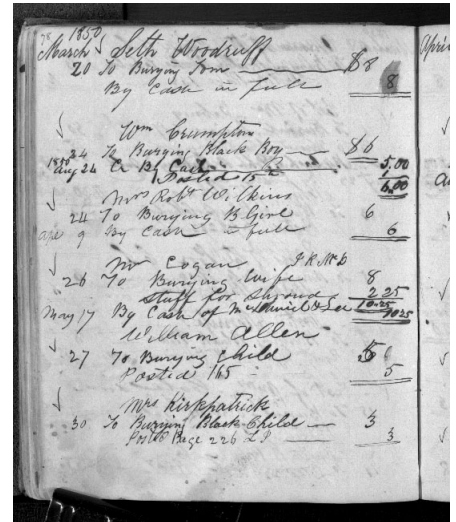 78 1850
March Seth Woodruff
20 To Burying Tom $8
By Cash in full 8
Wm Crumpton
24 To Burying Black Boy $6
1850 Aug 24 Cr By Cash 5.00
Posted 15 1
6.00
Mrs Robt Wilkins
24 To Burying B Girl 6
Apr 9 By Cash in full 6
Mr Cogan
26 To Burying Wife 8
Stuff for Shroud 2.25
May 17 By Cash of 10.25 1025
William Allen
27 To Burying Child 5
Posted 165 5
Mrs Kirkpatrick
30 To Burying Black Child 3
Posted Page 226 3
April